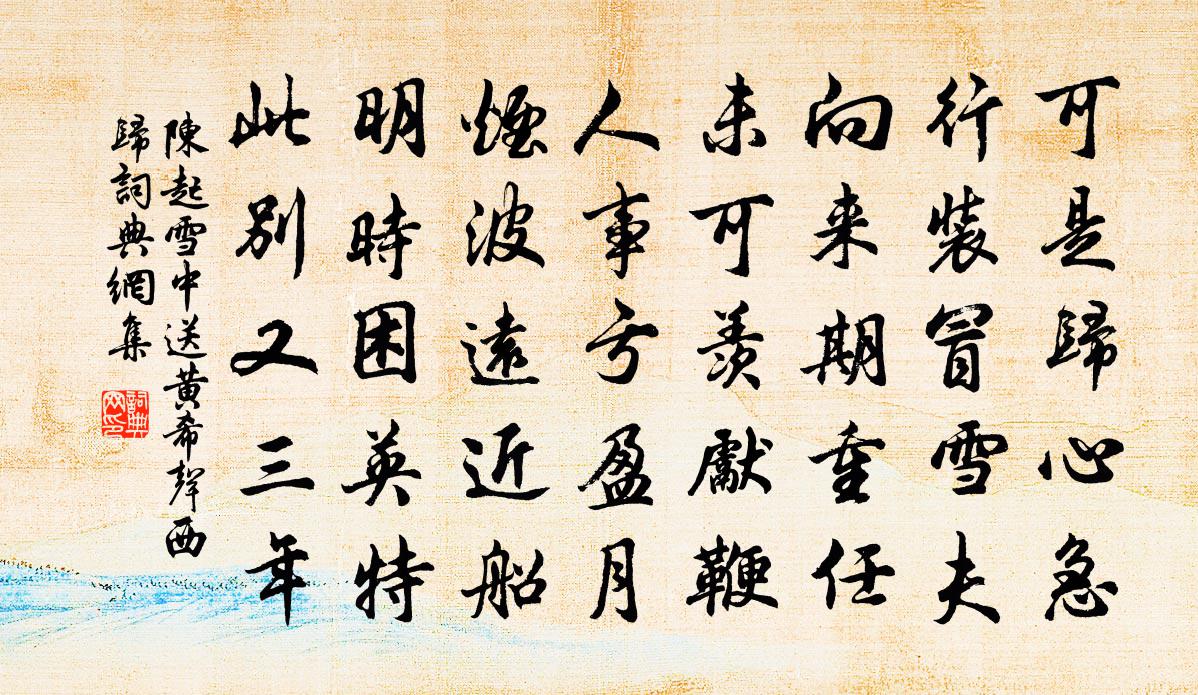 可是歸心急
行裝冒雪夫
向来期重任
未可羨獻鞭
人事亏盈月
煙波遠近船
明時困英特
此別又三年
陳起雪中送黃希聲西
歸詞典網集
詞典
网印